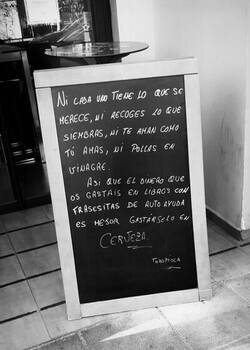 Ni cada uno tiene lo que se
merece, ni recoges lo que
siembras, ni te aman como
tú amas, ni pollas en
vinagre.
Asi que el dinero que
os gastais en libros con
frasesitas de autoayuda
es mejor gastárselo en
Cerveza.